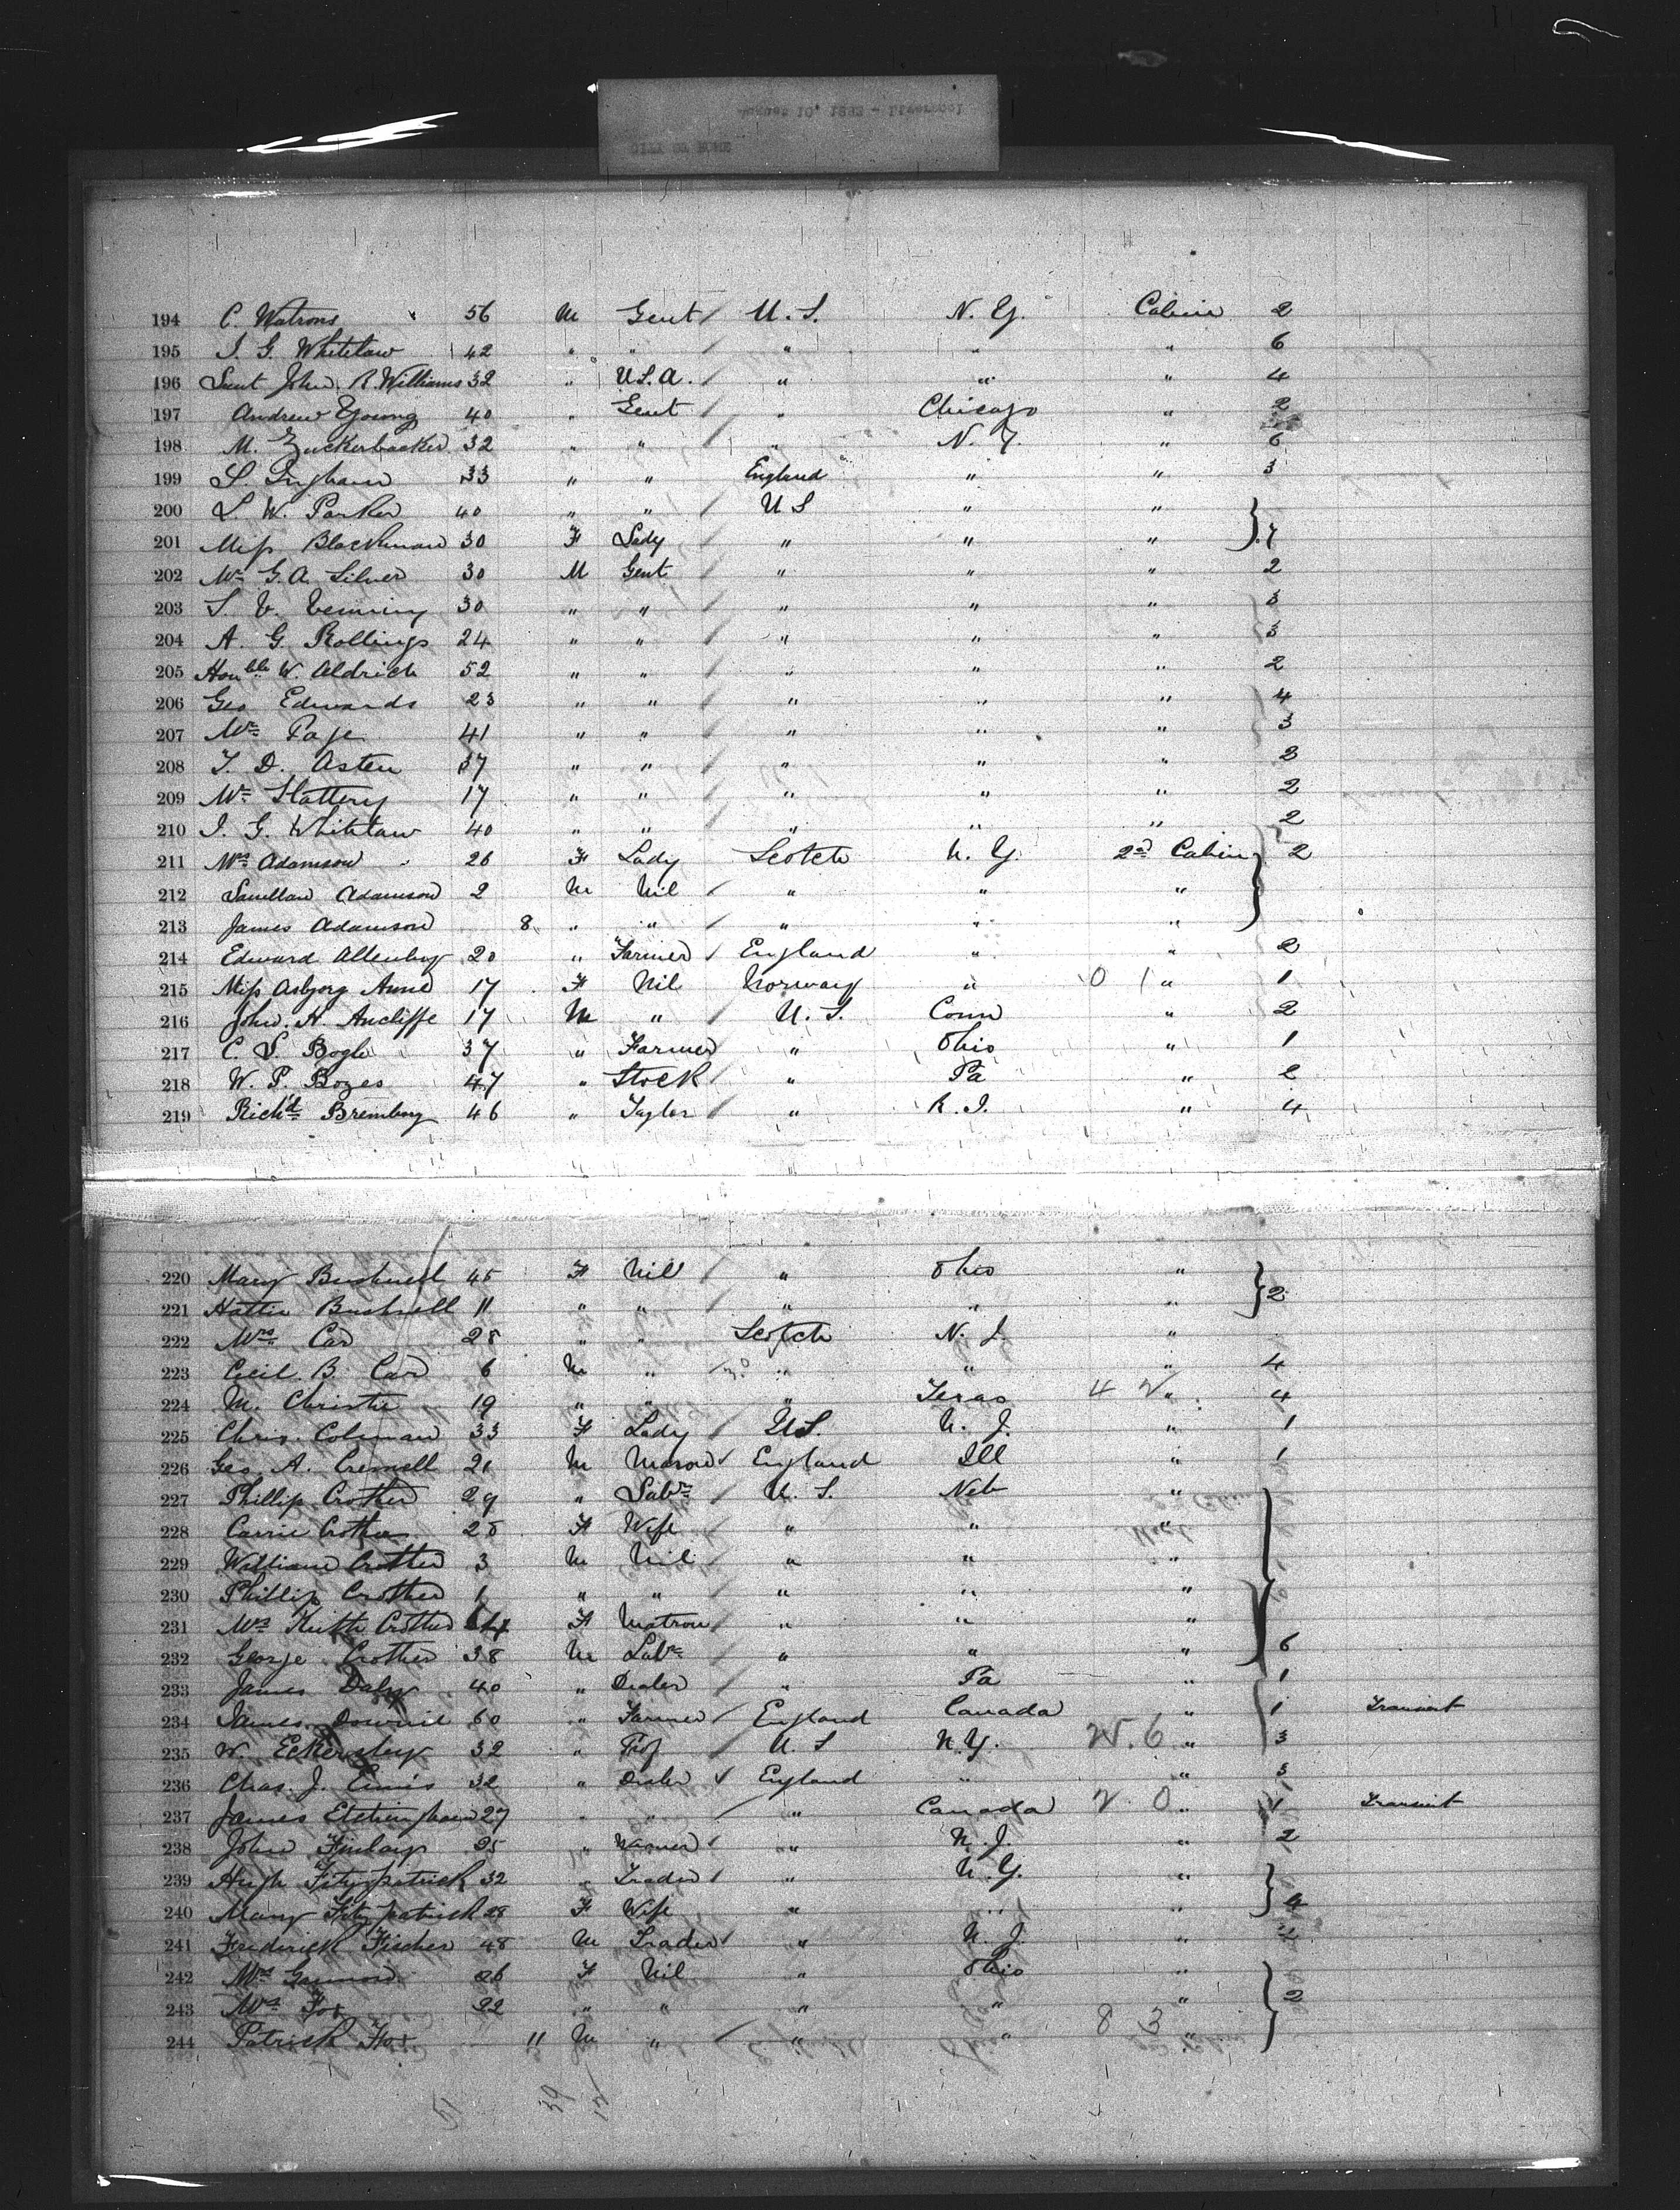 194 C. Watrous 56 M Gent U.S. N.Y. Cabin 2
195 J. G. Whitelaw 42 " " " " " 6
196 Lieut John R. Williams 32 " U.S.A. " " " 4
197 Andrew Young 40 " Gent " Chicago " 2
198 M. Zuckerbacker 32 " " " N.Y. " 6
199 S. Ingham 33 " " England " " 3
200 L. W. Parker 40 " " U S " "
201 Miss Blackman 30 F Lady " " " 7
202 Mr G. A. Silver 30 M Gent " " " 2
203 S. V. Venning 30 " " " " " 3
204 A. G. Rollings 24 " " " " " 3
205 Honble W. Aldrich 52 " " " " " 2
206 Geo Edwards 23 " " " " " 4
207 Mr Page 41 " " " " " 3
208 T. D. Asten 37 " " " " " 2
209 Mr Slattery 17 " " " " " 2
210 J. G. Whitelaw 40 " " " " " 2
211 Mrs Adamson 26 F Lady Scotch N.Y. 2nd Cabin 2
212 Adamson 2 M Nil " " "
213 James Adamson 8 " " " " "
214 Edward Allenby 20 " Farmer England " " 2
215 Miss Asbjorg Aune 17 F Nil Norway " 0 1 " 1
216 John. H. Ancliffe 17 M " U.S. Conn " 2
217 C. S. Bogle 37 " Farmer " Ohio " 1
218 W. P. Bozes 47 " Stock " Pa " 2
219 Richd Brembury 46 " Taylor " R.I. " 4
220 Mary Bushnell 45 F Nil " Ohio "
221 Hattie Bushnell 11 " " " " " 2
222 Mrs Car 28 " " Scotch N.J. "
223 Cecil. B. Car 6 M " " " " 4
224 M. Christie 19 " " " Texas 4 2 " 4
225 Chris. Coleman 33 F Lady U.S. N.J. " 1
226 Geo. A. Cremell 21 M Mason England Ill " 1
227 Phillip Crother 29 " Labr U.S. Neb "
228 Carrie Crother 28 F Wife " " "
229 William Crother 3 M Nil " " "
230 Phillip Crother 1 " " " " "
231 Mrs Crother 64 F Matron " " "
232 George Crother 38 M Labr " " " 6
233 James Daly 40 " Dealer " Pa " 1
234 James Downie 60 " Farmer England Canada " 1 Transit
235 W. Eckersley 32 " Prof U.S N.Y. W. 6 " 3
236 Chas. J. Ennis 32 " Dealer England " " 3
237 James Etchingham 27 " " " Canada 2 0 " 1 Transit
238 John Finlay 25 " " N.J. " 2
239 Hugh Fitzpatrick 32 " Trader " N.Y. "
240 Mary Fitzpatrick 28 F Wife " " " 4
241 Frederick Fischer 48 M Trader " N.J. " 2
242 Mrs Gannon 26 F Nil " Ohio "
243 Mrs Fox 22 " " " " " 2
244 Patrick Fox 11 M " " " 8 3 "